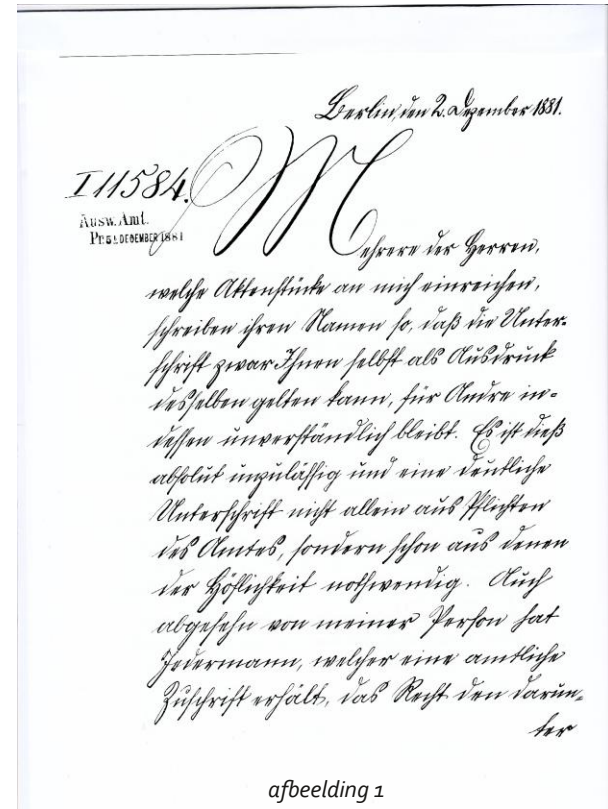 Berlin, den 2. Dezember 1881.
I 11584.
Ausw. Amt.
Pr. 5. DECEMBER 1881
Mehrere der Herren,
welche Aktenstücke an mich einreichen,
schreiben ihren Namen so, daß die Unter-
schrift zwar Ihnen selbst als Ausdruck
desselben gelten kann, für Andre in-
dessen unverständlich bleibt. Es ist dieß
absolut unzulässig und eine deutliche
Unterschrift nicht allein aus Pflichten
des Amtes, sondern schon aus denen
der Höflichkeit nothwendig. Auch
abgesehn von meiner Person hat
Jedermann, welcher eine amtliche
Zuschrift erhält, das Recht den darun-
ter
afbeelding 1